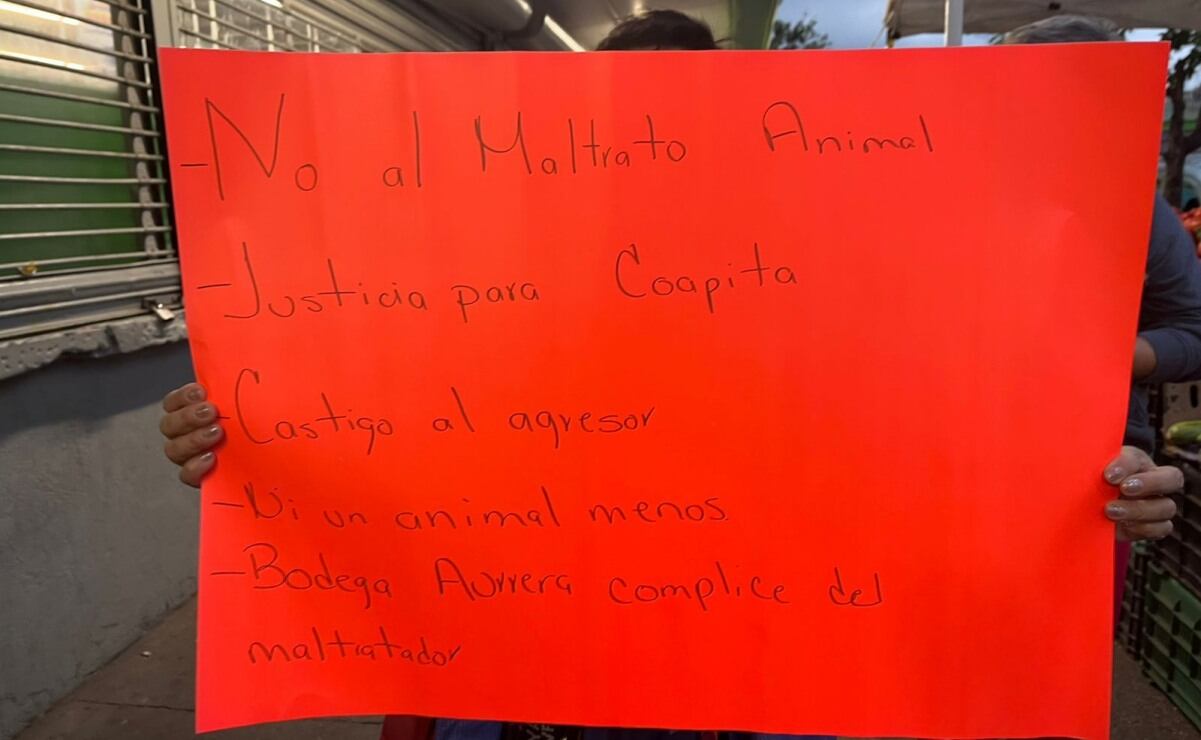 -No al Maltrato Animal
-Justicia para Coapita
-Castigo al agresor
-Ni un animal menos.
-Bodega Aurrera complice del
maltratador